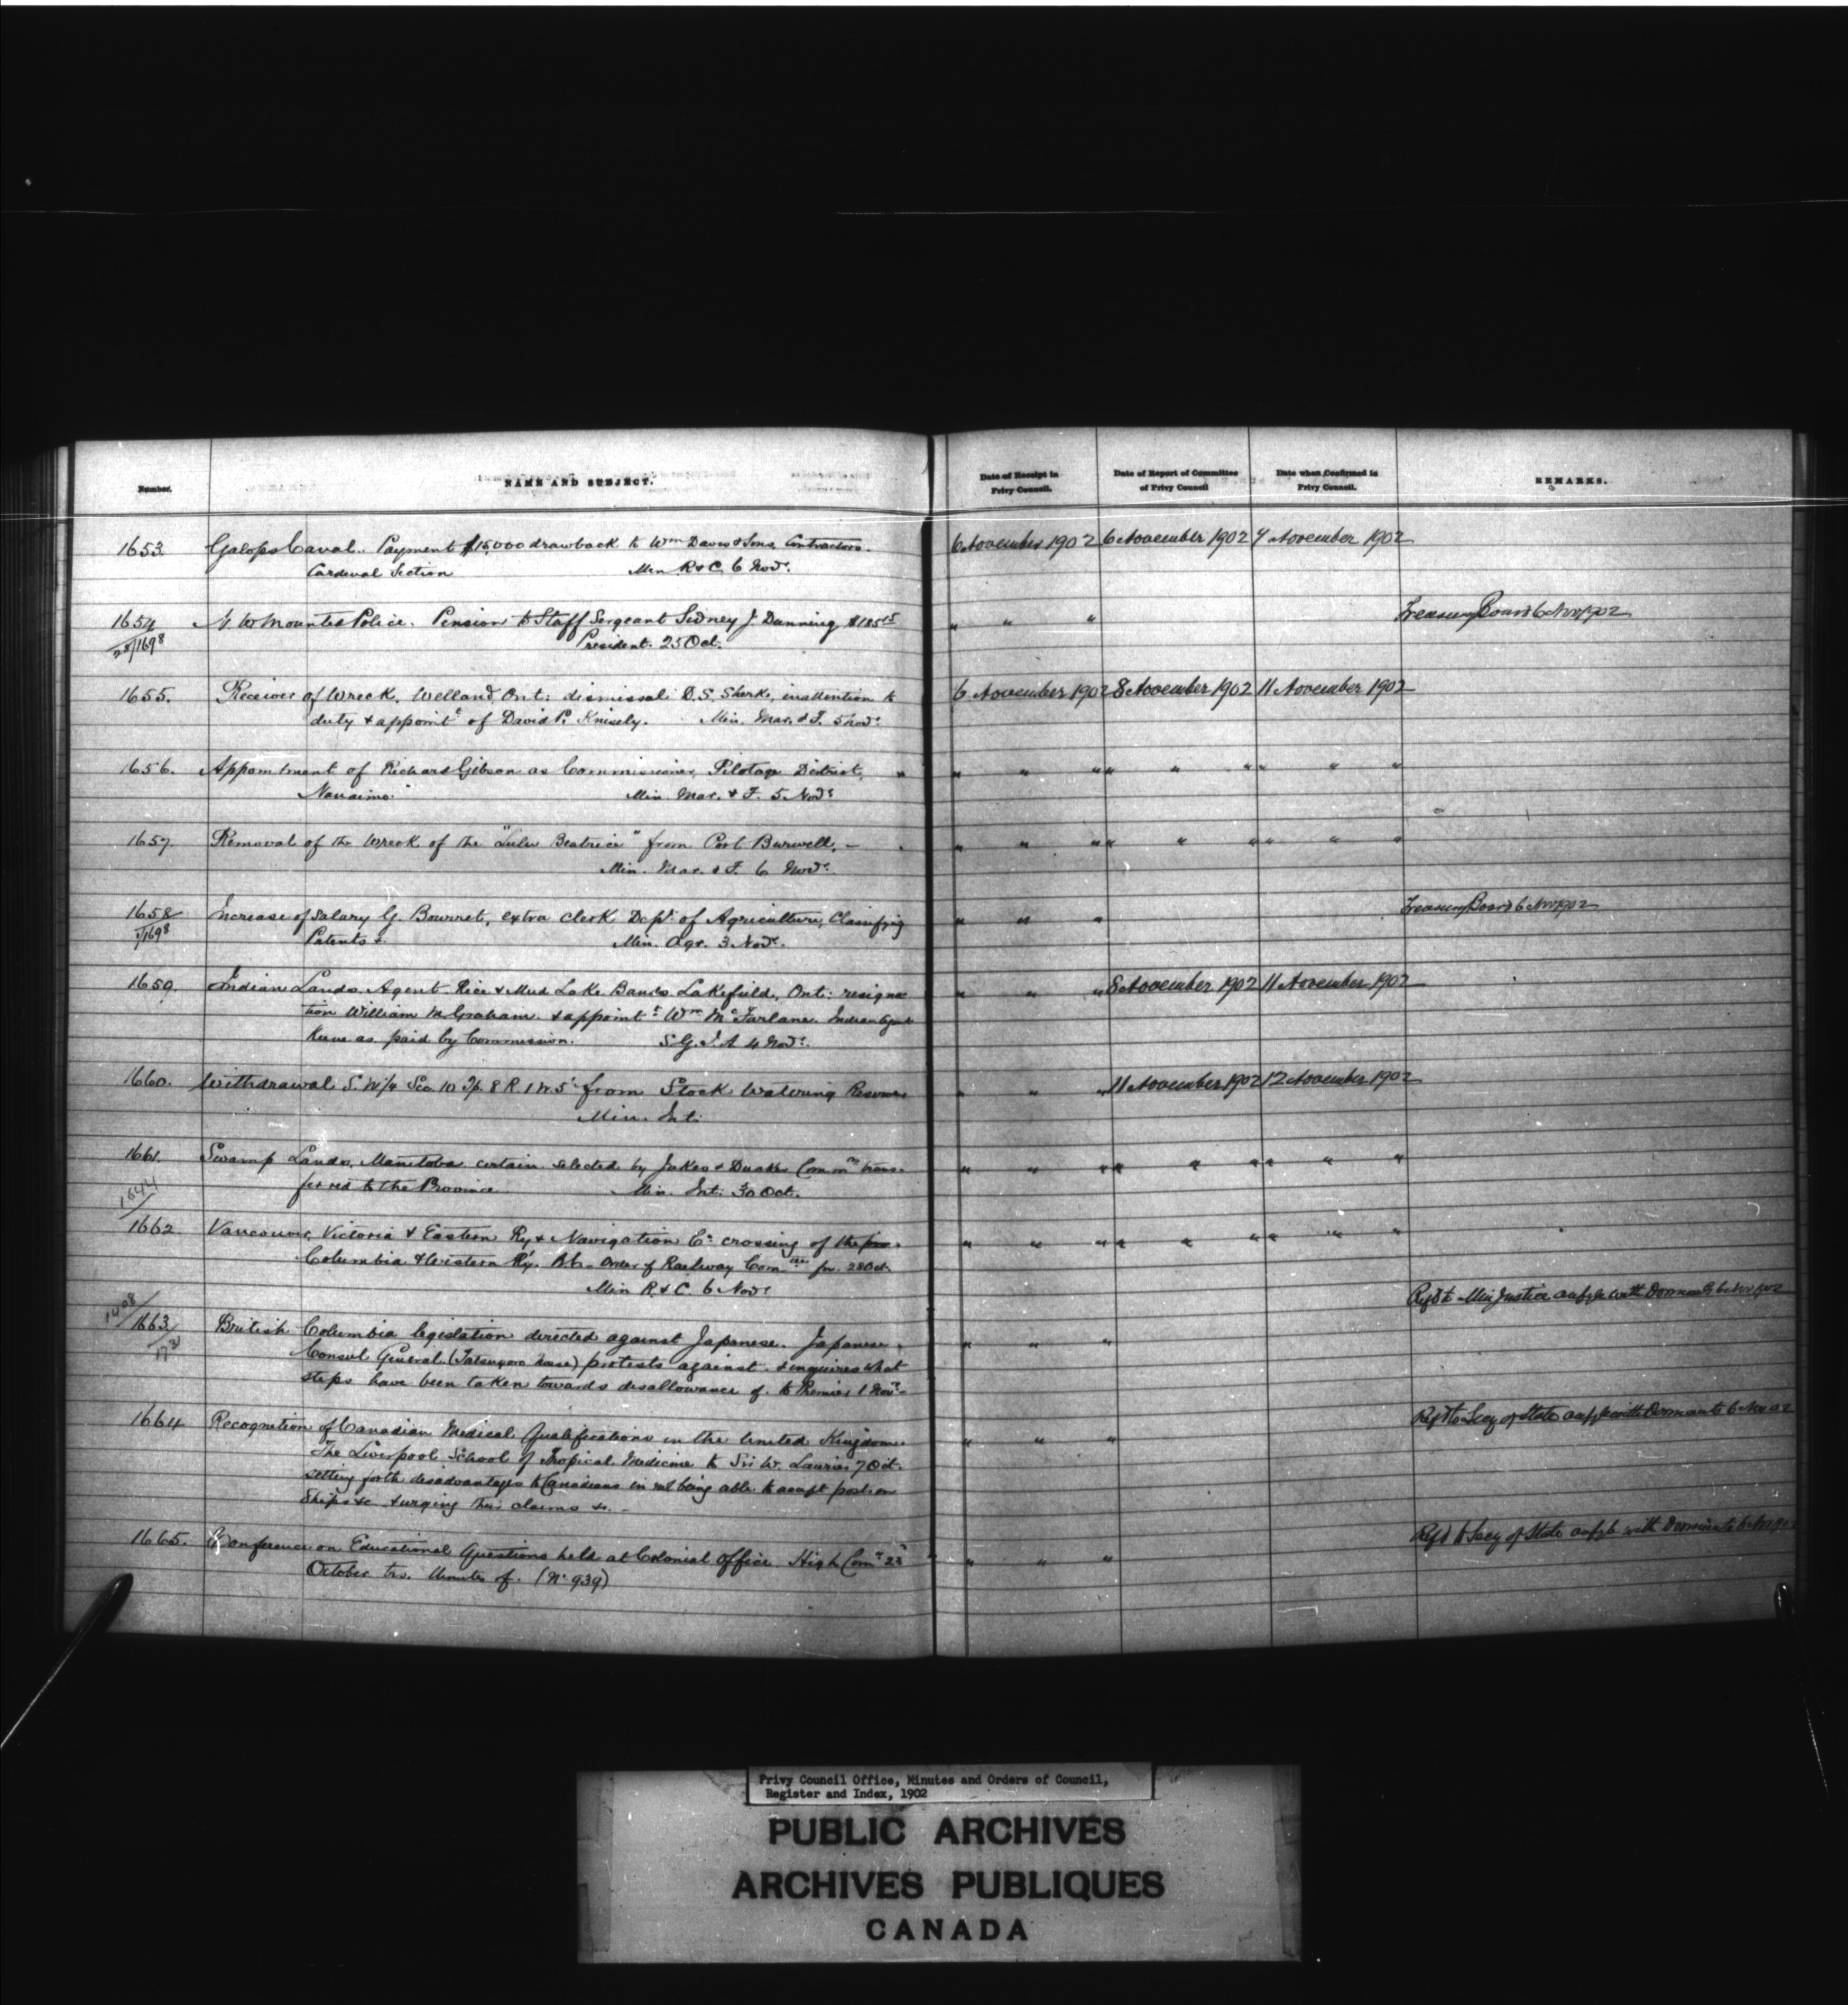 Number.
NAME AND SUBJECT.
Date of Receipt in Privy Council.
Date of Report of Committee of Privy Council
Date when Confirmed in Privy Council.
REMARKS.
1653 Galops Canal. Payment $15,000 drawback to Wm Davis & Sons, Contractors. 6 November 1902 6 November 1902 7 November 1902
Cardinal Section Min R & C. 6 Nov.
1654 N. W. Mounted Police. Pension to Staff Sergeant Sidney J Dunning $185 15 " " " Treasury Board 6 Nov 1902
28/1698 President. 25 Oct.
1655. Receiver of Wreck, Welland, Ont: dismissal D. S. Sherk, inattention to 6 November 1902 8 November 1902 11 November 1902
duty & appoint t of David P. Knisely. Min. Mar. & F. 5 Nov.
1656. Appointment of Richard Gibson as Commissioner, Pilotage District, " " " " " " " " "
Nanaimo. Min. Mar. & F. 5 Nov.
1657. Removal of the Wreck of the "Lulu Beatrice" from Port Burwell. – " " " " " " " " "
Min. Mar. & F. 6 Nov.
1658 Increase of Salary G. Bourret, extra clerk Dept. of Agriculture, Classifying " " " Treasury Board 6 Nov 1902
1/1698 Patents &. Min. Agr. 3 Nov.
1659. Indian Lands. Agent Rice & Mud Lake Bands Lakefield, Ont: resigna " " " 8 November 1902 11 November 1902
tion William M. Graham. & appoint t Wm McFarlane. Indian Agent
hence as paid by Commission. S. G. I. A 4 Nov.
1660. Withdrawal S. W 1/4 Sec. 10 Tp. 8 R. 1 W. 5 from Stock Watering Reserves " " " 11 November 1902 12 November 1902
Min. Int.
1661. Swamp Lands, Manitoba certain selected by Jakes & Comm rs trans- " " " " " " " " "
ferred to the Province Min. Int. 30 Oct.
1544
1662 Vancouver, Victoria & Eastern Ry & Navigation Co crossing of the " " " " " " " " "
Columbia & Western Ry. B.C. Order of Railway Com tee for. 28 Oct.
Min R. & C. 6 Nov.
1408/1663/173 British Columbia legislation directed against Japanese. Japanese " " " Refd to Min Justice with 6 Nov 1902
Consul General. (Tatsugoro Nosse) protests against. & inquires what
steps have been taken towards disallowance of. to Premier 1 Nov.
1664 Recognition of Canadian Medical Qualifications in the United Kingdom. " " " Refd to Secy of State with 6 Nov 02
The Liverpool School of Tropical Medicine to Sir W. Laurier 7 Oct.
setting forth disadvantages to Canadians in not being able to accept posts on
Ships &c & urging their claims &c. –
1665. Conference on Educational Questions held at Colonial Office High Comr 23 " " " Refd to Secy of State with
October trs. Minutes of. (No. 939)
Privy Council Office, Minutes and Orders of Council,
Register and Index, 1902
PUBLIC ARCHIVES
ARCHIVES PUBLIQUES
CANADA